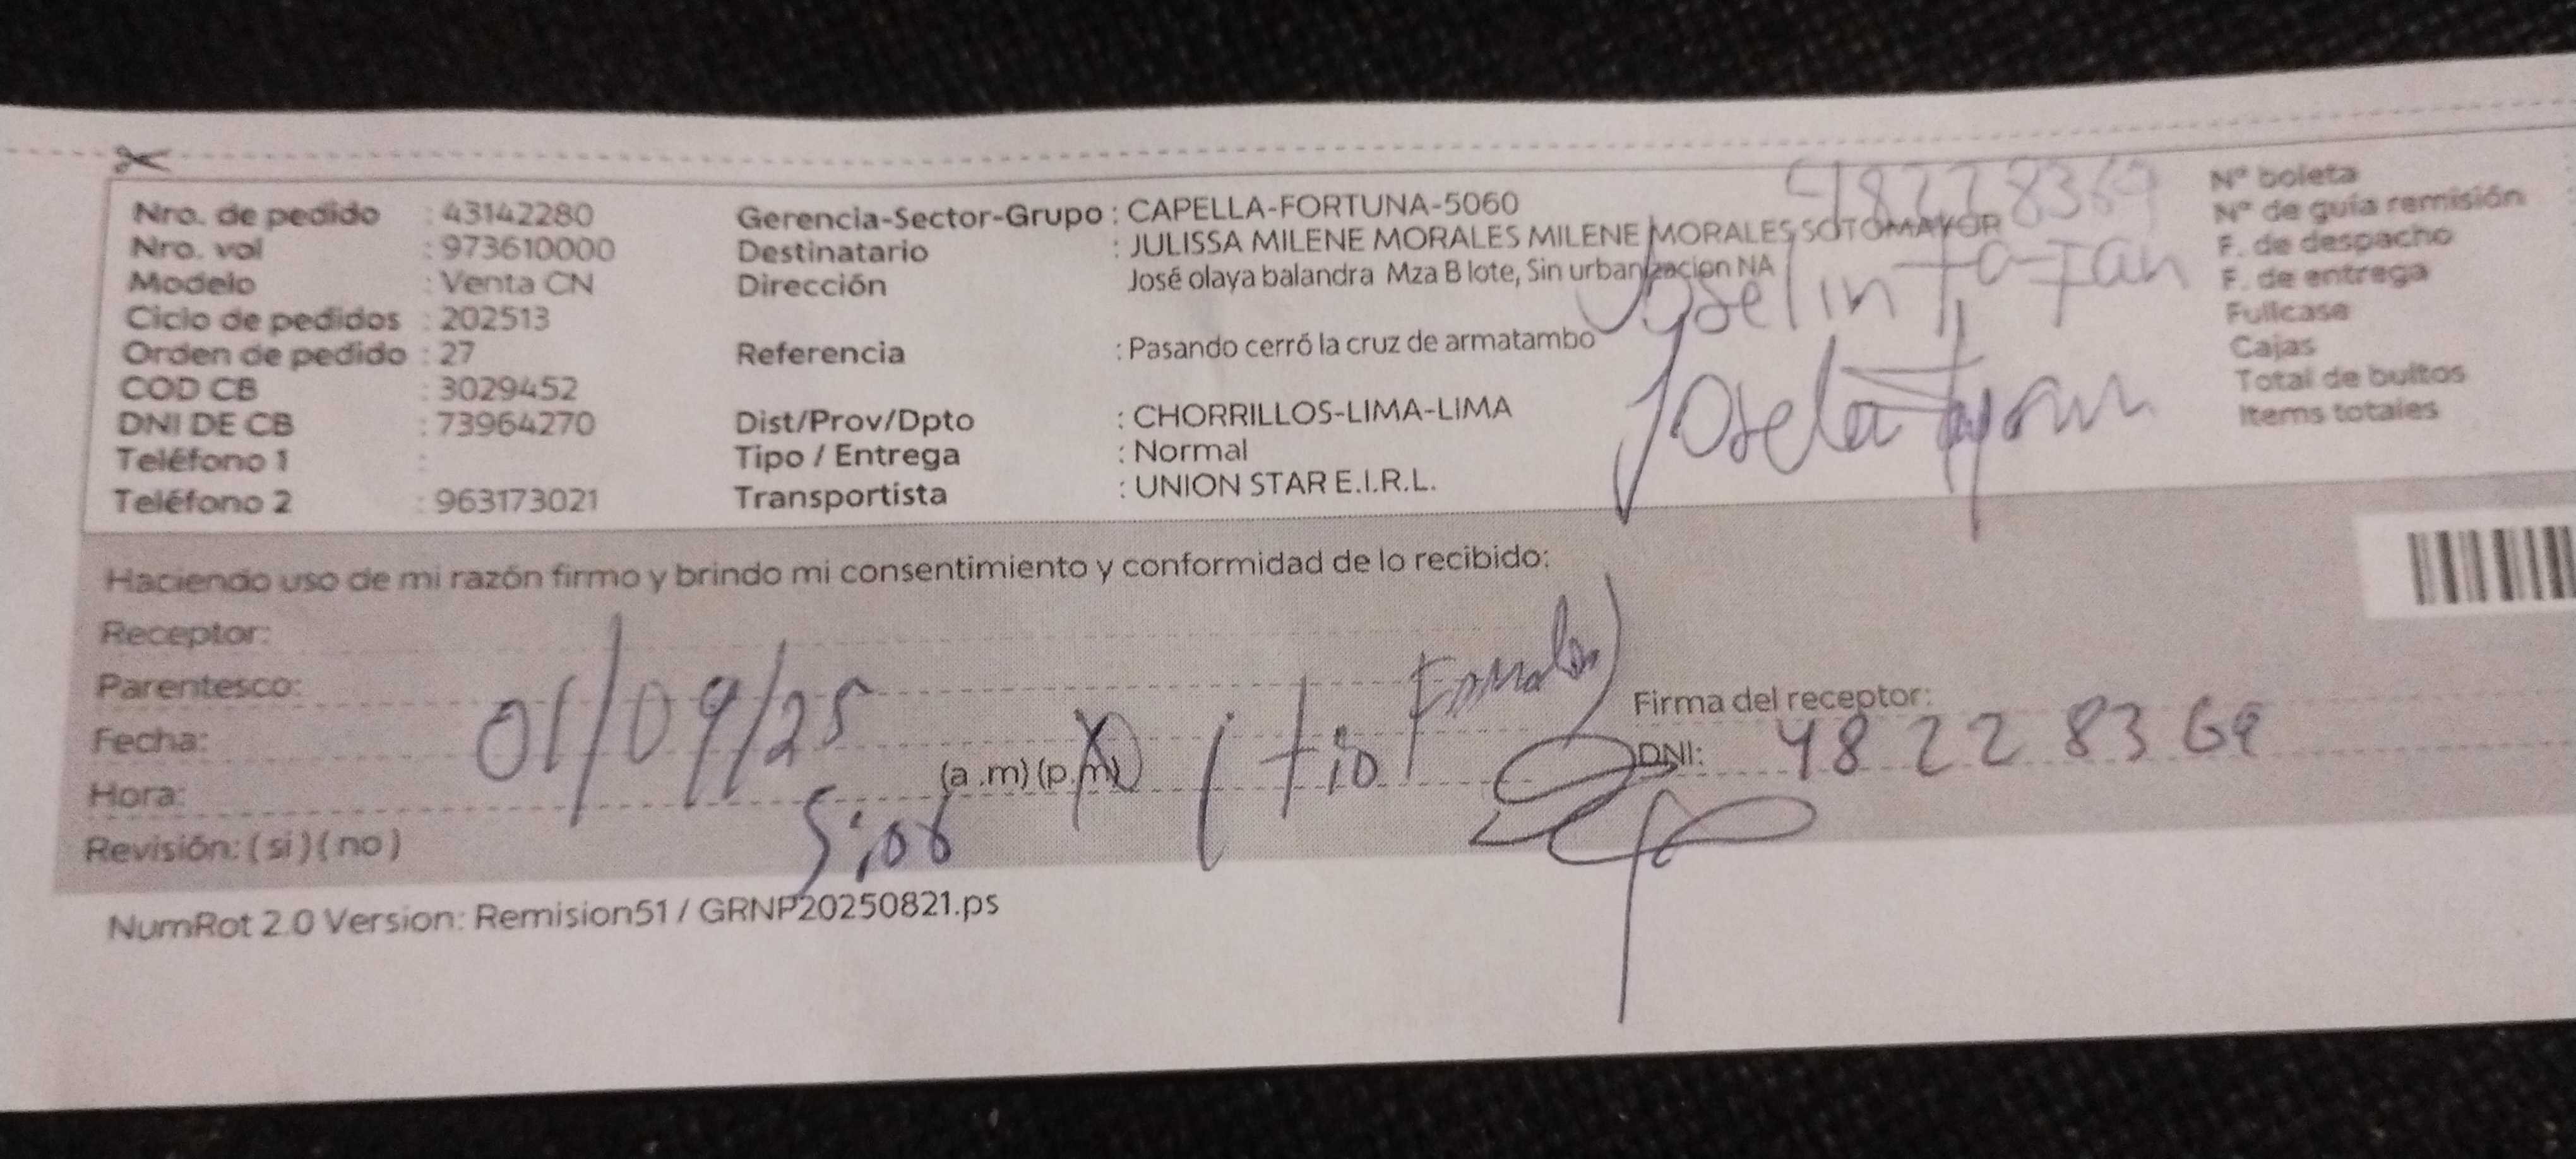 Nro. de pedido : 43142280
Nro. val : 973610000
Modelo : Venta CN
Ciclo de pedidos : 202513
Orden de pedido : 27
COD CB : 3029452
DNI DE CB : 73964270
Teléfono 1 :
Teléfono 2 : 963173021
Gerencia-Sector-Grupo : CAPELLA-FORTUNA-5060
Destinatario : JULISSA MILENE MORALES MILENE MORALES SOTOMAYOR
Dirección José olaya balandra Mza B lote, Sin urbanizacion NA
Referencia : Pasando cerró la cruz de armatambo
Dist/Prov/Dpto : CHORRILLOS-LIMA-LIMA
Tipo / Entrega : Normal
Transportista : UNION STAR E.I.R.L.
48228369
N° boleta
N° de guía remisión
F. de despacho
F. de entrega
Fullcase
Cajas
Total de bultos
Items totales
Haciendo uso de mi razón firmo y brindo mi consentimiento y conformidad de lo recibido:
Receptor:
Parentesco:
Fecha: 01/09/25
Hora: (a .m) (p.m)
(tio
Firma del receptor:
DNI: 48228369
Revisión: ( si ) ( no )
NumRot 2.0 Version: Remision51 / GRNP20250821.ps